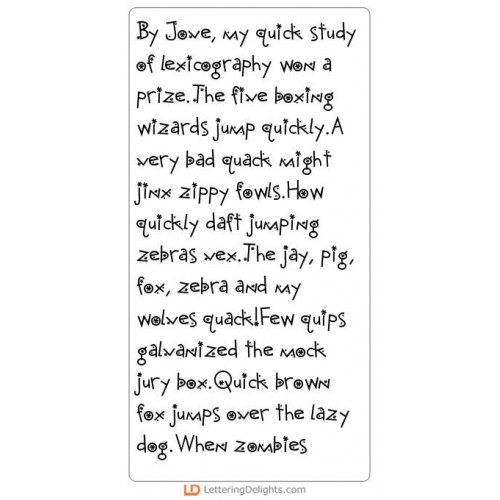 By Jove, my quick study
of lexicography won a
prize.The five boxing
wizards jump quickly.A
very bad quack might
jinx zippy fowls.How
quickly daft jumping
zebras vex.The jay, pig,
fox, zebra and my
wolves quack!Few quips
galvanized the mock
jury box.Quick brown
fox jumps over the lazy
dog.When zombies
LD LetteringDelights.com